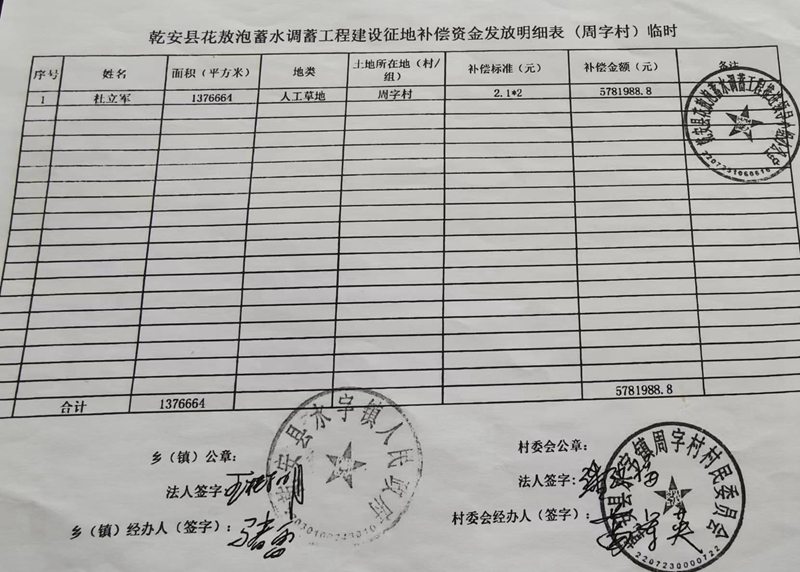 乾安县花敖泡蓄水调蓄工程建设征地补偿资金发放明细表（周字村）临时
序号 姓名 面积（平方米） 地类 土地所在地（村/组） 补偿标准（元） 补偿金额（元） 备注
1 杜立军 1376664 人工草地 周字村 2.1*2 5781988.8
合计 1376664 5781988.8
乡（镇）公章：
法人签字：
乡（镇）经办人（签字）：
村委会公章：
法人签字：
村委会经办人（签字）：
乾安县水字镇人民政府
周字村村民委员会
2207230000722